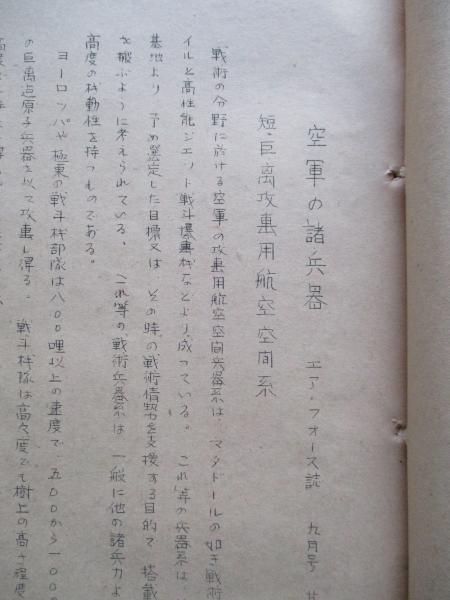 空軍の諸兵器　エア・フォース誌　九月号
短・巨離攻車用航空空间系
戦術の分野に於ける空軍の攻車用航空空间兵器系は、マタドールの如き戦術
イルと高性能ジェット戦斗爆車机などより成っている。これ等の兵器系は、
基地より予め選定した目標又はその時の戦術情勢を支援する目的で搭載
を撰ぶように考えられている、これ等の戦術兵器系は一般に他の諸兵力よ
高度の机動性を持つものである。
ヨーロッパや極東の戦斗机部隊は八〇〇哩以上の速度で五〇〇から一〇〇
の巨离迠原子兵器を以て攻車し得る、戦斗机隊は高々度でも樹上の高さ程度